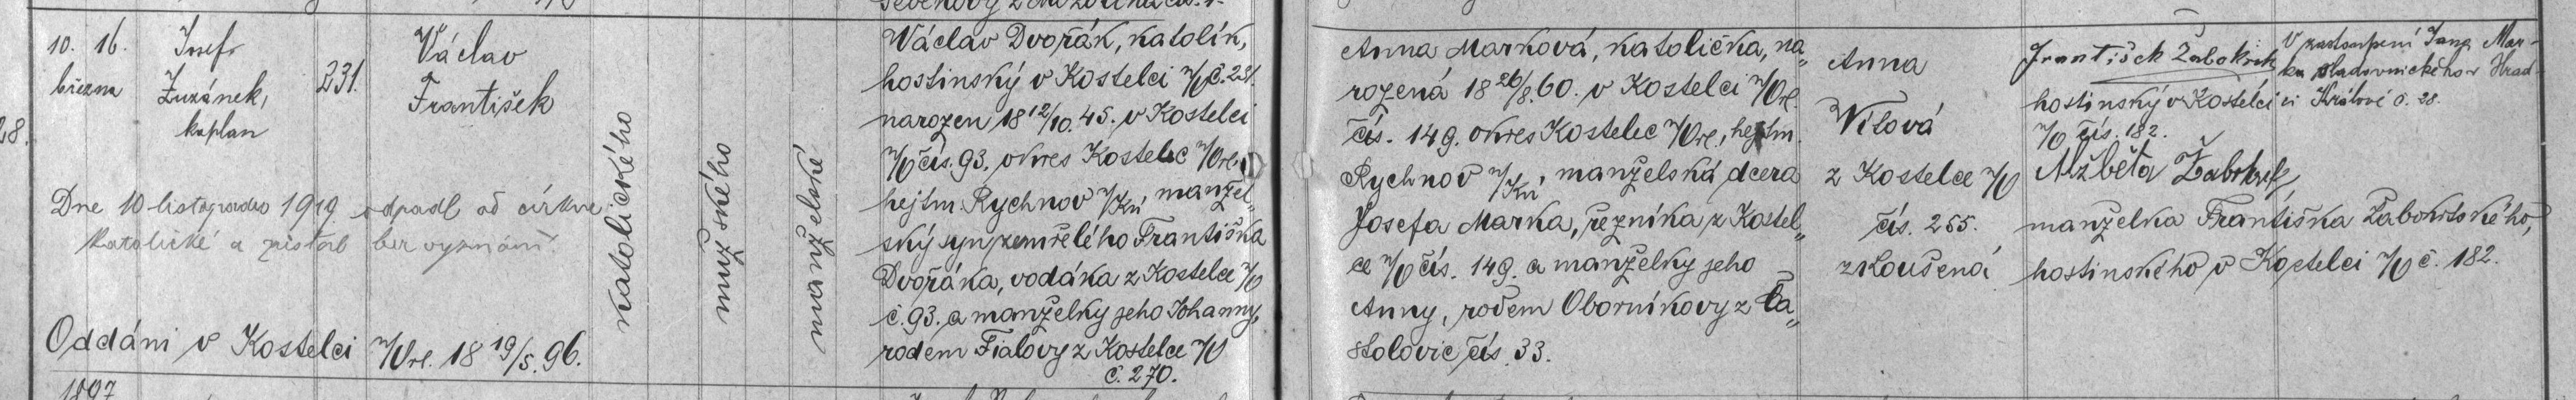 10. 16.
března
Josef
Zuzánek,
kaplan
231.
Václav
František
katolického
mužského
manželské
Dne 10 listopadu 1919 odpadl od církve
katolické a zůstal bez vyznání.
Oddáni v Kostelci n/Orl. 18 19/5. 96.
Václav Dvořák, katolík,
hostinský v Kostelci n/O č. 231.
narozen 18 12/10. 45. v Kostelci
n/O čís. 93. okres Kostelec n/Orl.
hejtm. Rychnov n/Kn manžel„
ský syn zemřelého Františka
Dvořáka, vodáka z Kostelce n/O
č. 93. a manželky jeho Johanny,
rodem Fialovy z Kostelce n/O
č. 270.
Anna Marková, katolička, na„
rozená 18 26/8. 60. v Kostelci n/Orl.
čís. 149. okres Kostelec n/Orl., hejtm.
Rychnov n/Kn, manželská dcera
Josefa Marka, řezníka z Kostel„
ce n/O čís. 149. a manželky jeho
Anny, rodem Oborníkovy z Ča„
stolovic čís. 33.
Anna
Vítová
z Kostelce n/O
čís. 255.
zkoušená
František Žabokrtk
hostinský v Kostelci
n/O čís. 182.
V zastoupení Jana Mar-
ka sladovnického v Hrad-
ci Králové č. 28.
Alžběta Žabokrtk
manželka Františka Žabokrtského,
hostinského v Kostelci n/O č. 182.
28.
1897